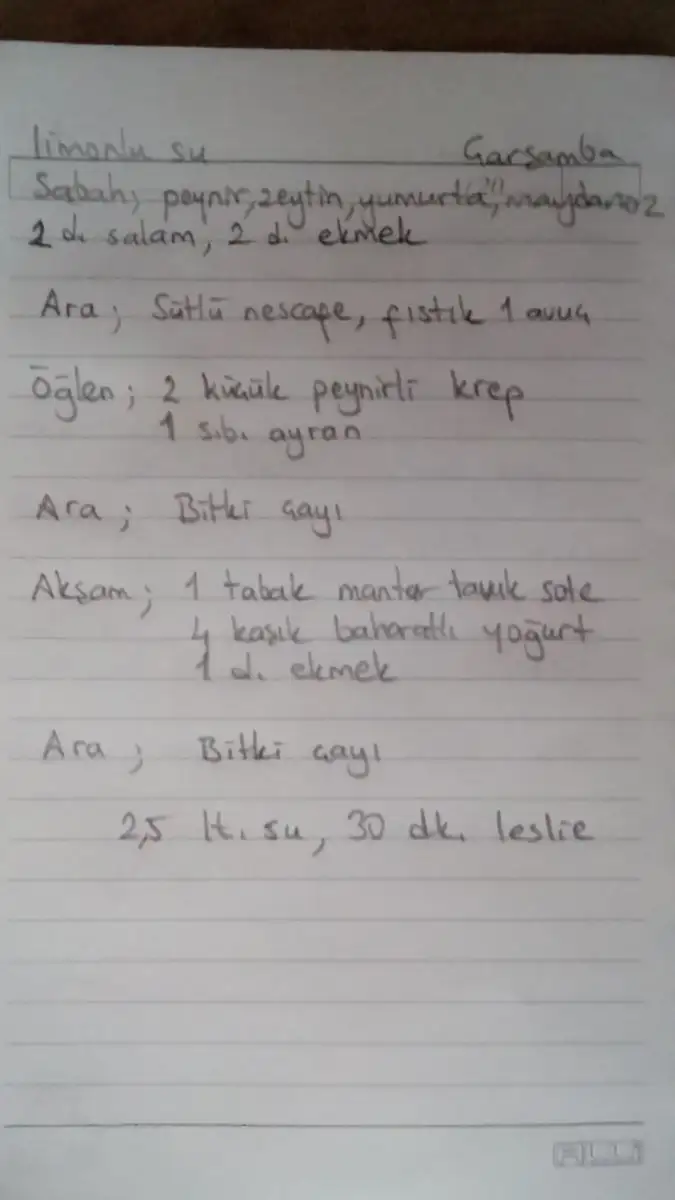 limonlu su Çarşamba
Sabah; peynir, zeytin, yumurta, maydanoz
2 d. salam, 2 d. ekmek
Ara; Sütlü nescafe, fıstık 1 avuç
Öğlen; 2 küçük peynirli krep
1 s.b. ayran
Ara; Bitki çayı
Akşam; 1 tabak mantar tavuk sote
4 kaşık baharatlı yoğurt
1 d. ekmek
Ara; Bitki çayı
2,5 lt. su, 30 dk. leslie